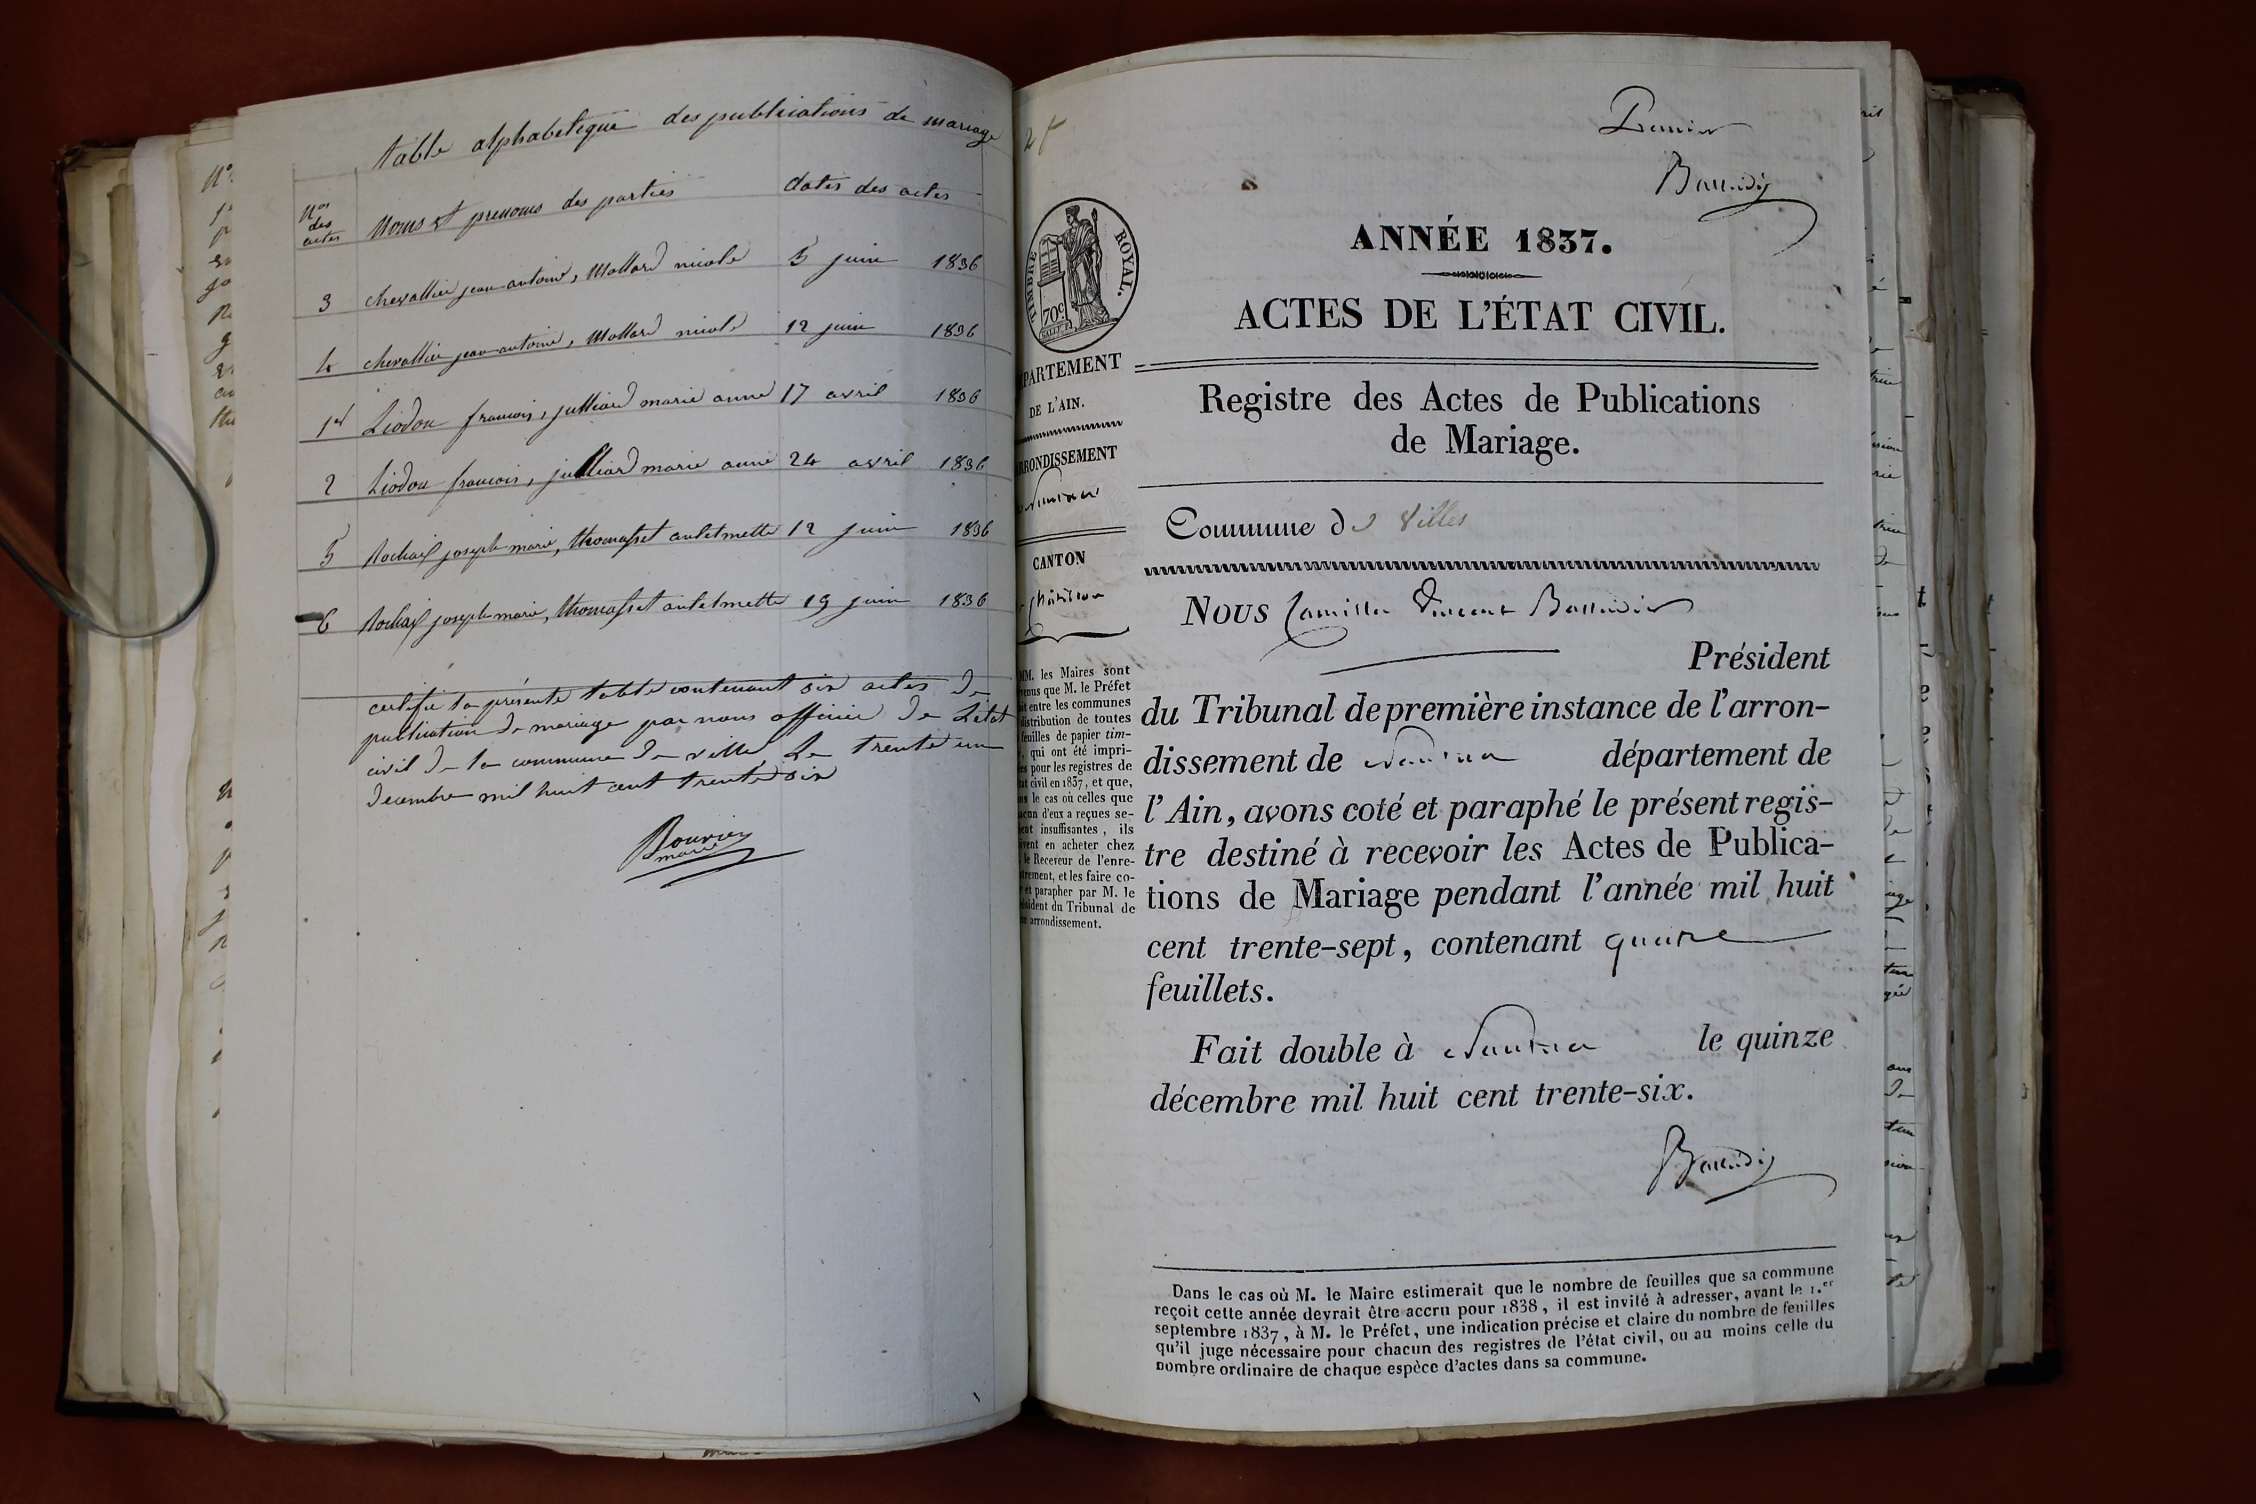 table alphabetique des publications de mariage
Nos des actes Noms et prenoms des parties dates des actes
3 chevallier jean antoine, Mollard nicole 5 juin 1836
4 chevallier jean antoine, Mollard nicole 12 juin 1836
1er Liodon francois, julliard marie anne 17 avril 1836
2 Liodon francois, julliard marie anne 24 avril 1836
5 Rochaix joseph marie, thomasset antelmette 12 juin 1836
6 Rochaix joseph marie, thomasset antelmette 19 juin 1836
certifie la présente table contenant six actes de
publication de mariage par nous officier de L'état
civil de la commune de ville Le trente un
decembre mil huit cent trente six
Bouvier
maire
Premier
ANNÉE 1837.
TIMBRE ROYAL.
70c
ACTES DE L'ÉTAT CIVIL.
PARTEMENT
DE L'AIN.
RONDISSEMENT
Nantua
CANTON
Châtillon
Registre des Actes de Publications
de Mariage.
Commune de Villes
Nous Camille Vincent
Président
du Tribunal de première instance de l'arron-
dissement de Nantua département de
l'Ain, avons coté et paraphé le présent regis-
tre destiné à recevoir les Actes de Publica-
tions de Mariage pendant l'année mil huit
cent trente-sept, contenant quatre
feuillets.
Fait double à Nantua le quinze
décembre mil huit cent trente-six.
MM. les Maires sont
venus que M. le Préfet
ait entre les communes
distribution de toutes
feuilles de papier tim-
, qui ont été impri-
es pour les registres de
tat civil en 1837, et que,
ns le cas où celles que
acun d'eux a reçues se-
ient insuffisantes, ils
ivent en acheter chez
le Receveur de l'enre-
trement, et les faire co-
r et parapher par M. le
ésident du Tribunal de
arrondissement.
Dans le cas où M. le Maire estimerait que le nombre de feuilles que sa commune
reçoit cette année devrait être accru pour 1838, il est invité à adresser, avant le 1.er
septembre 1837, à M. le Préfet, une indication précise et claire du nombre de feuilles
qu'il juge nécessaire pour chacun des registres de l'état civil, ou au moins celle du
nombre ordinaire de chaque espèce d'actes dans sa commune.